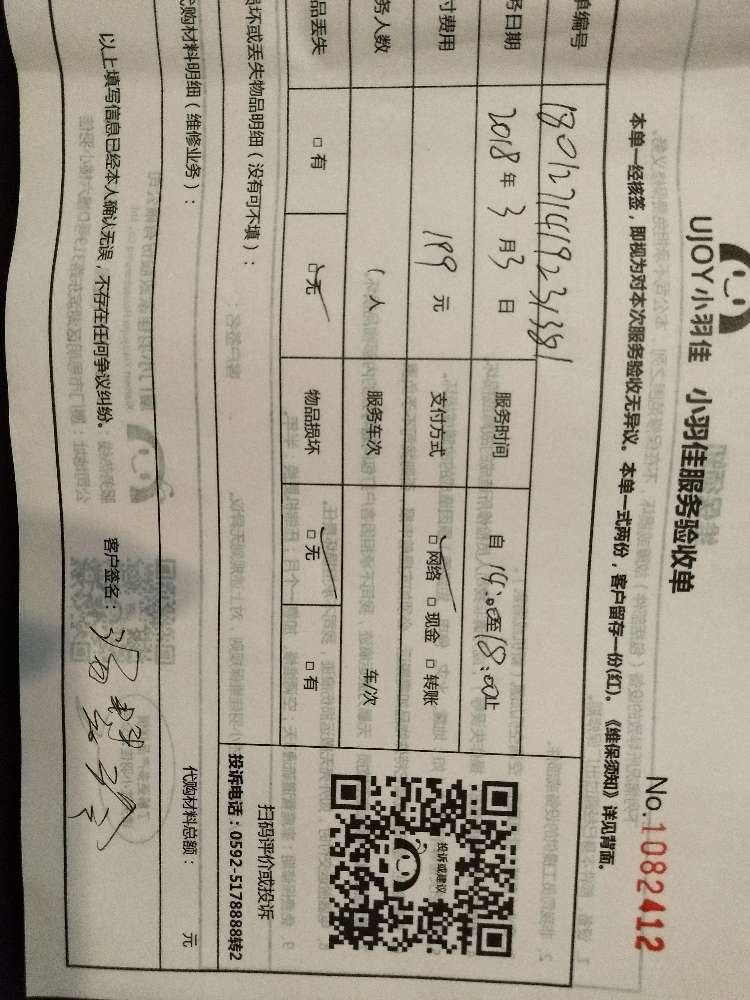 UJOY小羽佳 小羽佳服务验收单
No. 1082412
本单一经核签，即视为对本次服务验收无异议。本单一式两份，客户留存一份(红)。《维保须知》详见背面。
单编号 1801271419231381
务日期 2018 年 3 月 3 日 服务时间 自 14:00 至 18:00 止
付费用 199 元 支付方式 □ 网络 □ 现金 □ 转账
务人数 ( 人 服务车次 车/次
品丢失 □ 有 □ 无 物品损坏 □ 无 □ 有
投诉或建议
扫码评价或投诉
投诉电话：0592-5178888转2
损坏或丢失物品明细（没有可不填）：
代购材料明细（维修业务）： 代购材料总额： 元
以上填写信息已经本人确认无误，不存在任何争议纠纷。 客户签名：